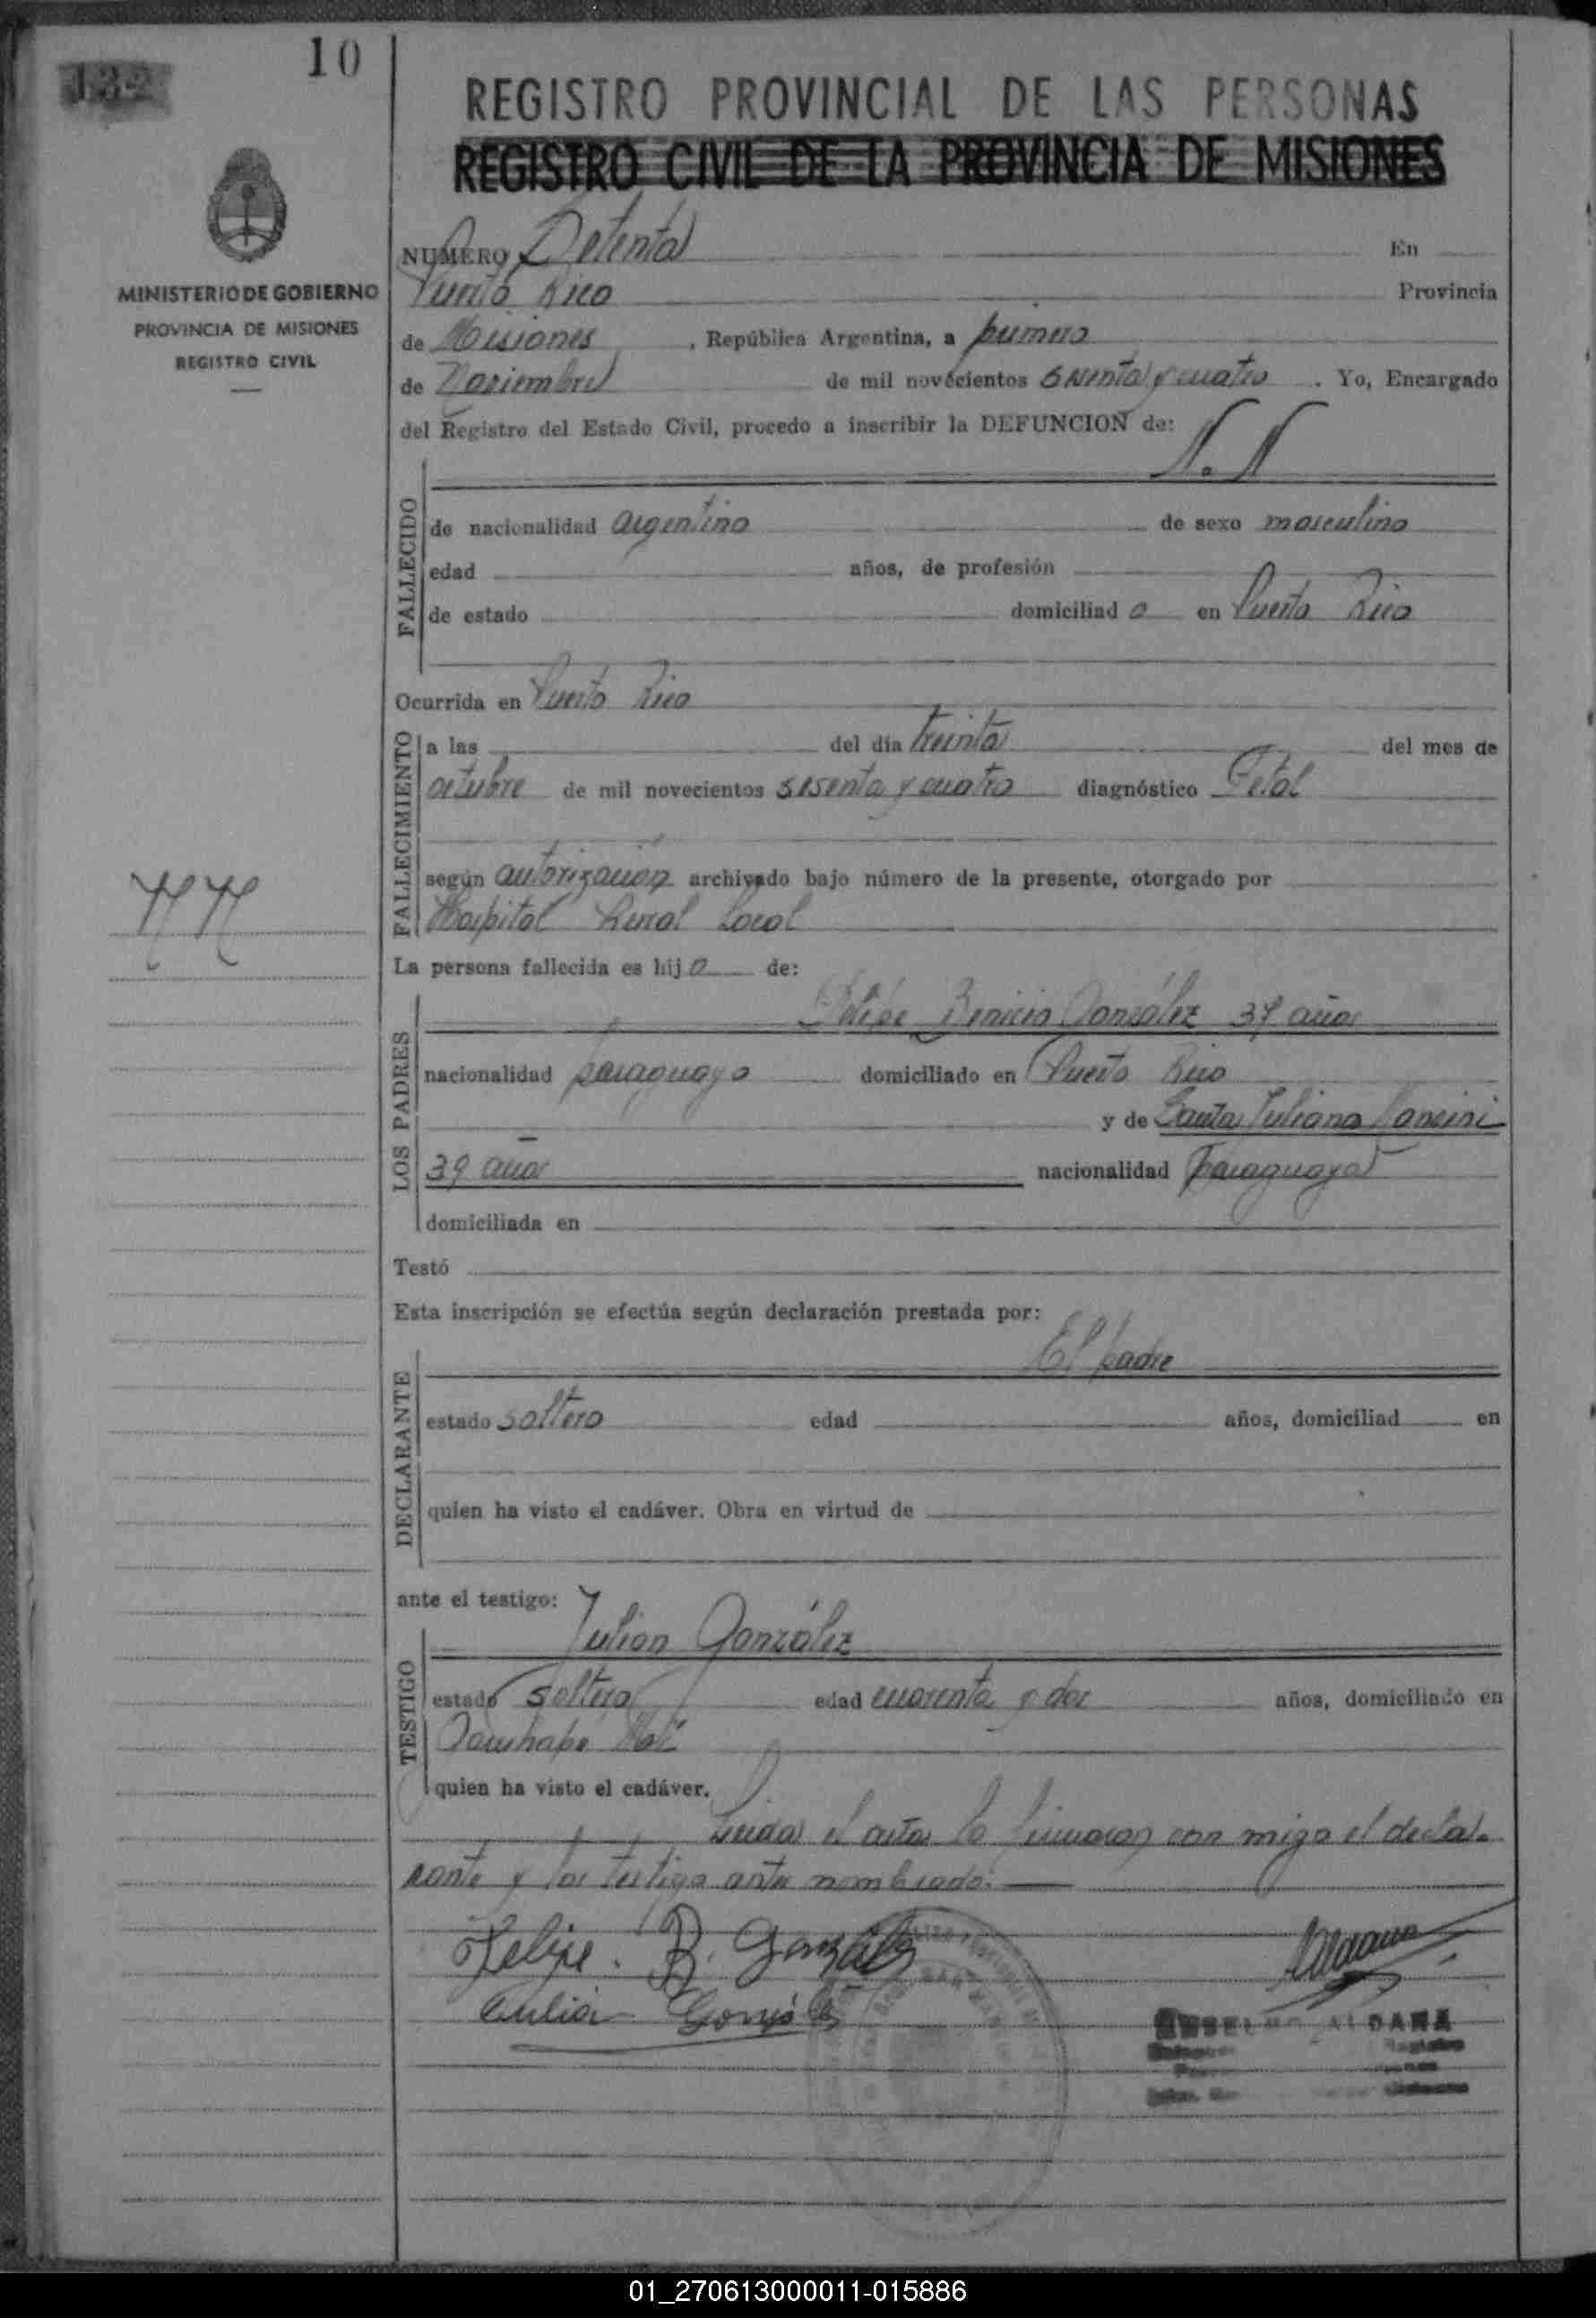 10
132
REGISTRO PROVINCIAL DE LAS PERSONAS
REGISTRO CIVIL DE LA PROVINCIA DE MISIONES
MINISTERIO DE GOBIERNO
PROVINCIA DE MISIONES
REGISTRO CIVIL
NUMERO Setenta En
Puerto Rico Provincia
de Misiones , República Argentina, a primero
de Noviembre de mil novecientos sesenta y cuatro . Yo, Encargado
del Registro del Estado Civil, procedo a inscribir la DEFUNCION de:
N. N
FALLECIDO
de nacionalidad argentino de sexo masculino
edad años, de profesión
de estado domiciliad o en Puerto Rico
Ocurrida en Puerto Rico
FALLECIMIENTO
a las del día treinta del mes de
octubre de mil novecientos sesenta y cuatro diagnóstico Fetal
según autorización archivado bajo número de la presente, otorgado por
Hospital Rural Local
NN
La persona fallecida es hij o de:
LOS PADRES
Felipe Benicio González 37 años
nacionalidad paraguayo domiciliado en Puerto Rico
y de Santa Juliana
39 años nacionalidad paraguaya
domiciliada en
Testó
Esta inscripción se efectúa según declaración prestada por:
DECLARANTE
El padre
estado soltero edad años, domiciliad en
quien ha visto el cadáver. Obra en virtud de
ante el testigo:
TESTIGO
Julian González
estado soltero edad cuarenta y dos años, domiciliado en
quien ha visto el cadáver.
Leida el acta la firmaron con migo el decla-
rante y los testigo antes nombrado.
Felipe. B. González
Julián González
Aldana
ANSELMO ALDANA
01_270613000011-015886